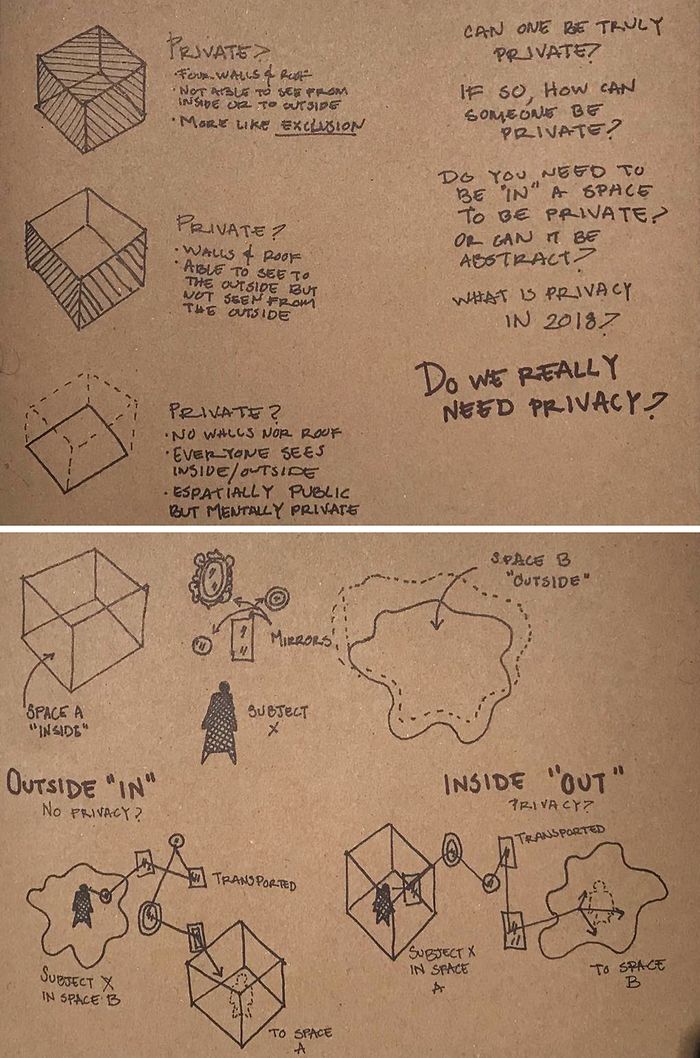 PRIVATE?
• FOUR WALLS & ROOF
• NOT ABLE TO SEE FROM
INSIDE OR TO OUTSIDE
• MORE LIKE EXCLUSION
PRIVATE?
• WALLS & ROOF
• ABLE TO SEE TO
THE OUTSIDE BUT
NOT SEEN FROM
THE OUTSIDE
PRIVATE?
• NO WALLS NOR ROOF
• EVERYONE SEES
INSIDE/OUTSIDE
• ESPATIALLY PUBLIC
BUT MENTALLY PRIVATE
CAN ONE BE TRULY
PRIVATE?
IF SO, HOW CAN
SOMEONE BE
PRIVATE?
DO YOU NEED TO
BE "IN" A SPACE
TO BE PRIVATE?
OR CAN IT BE
ABSTRACT?
WHAT IS PRIVACY
IN 2018?
DO WE REALLY
NEED PRIVACY?
SPACE A
"INSIDE"
MIRRORS
SUBJECT
X
SPACE B
"OUTSIDE"
OUTSIDE "IN"
NO PRIVACY?
TRANSPORTED
SUBJECT X
IN SPACE B
TO SPACE
A
INSIDE "OUT"
PRIVACY?
TRANSPORTED
SUBJECT X
IN SPACE
A
TO SPACE
B